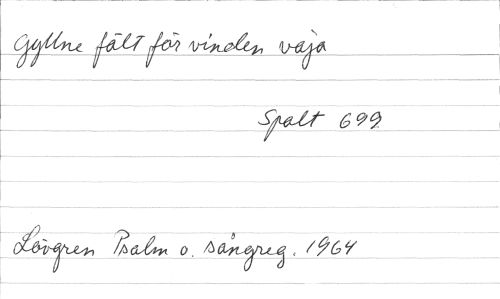 Gyllne fält för vinden vaja
Spalt 699
Lövgren Psalm o. sångreg. 1964